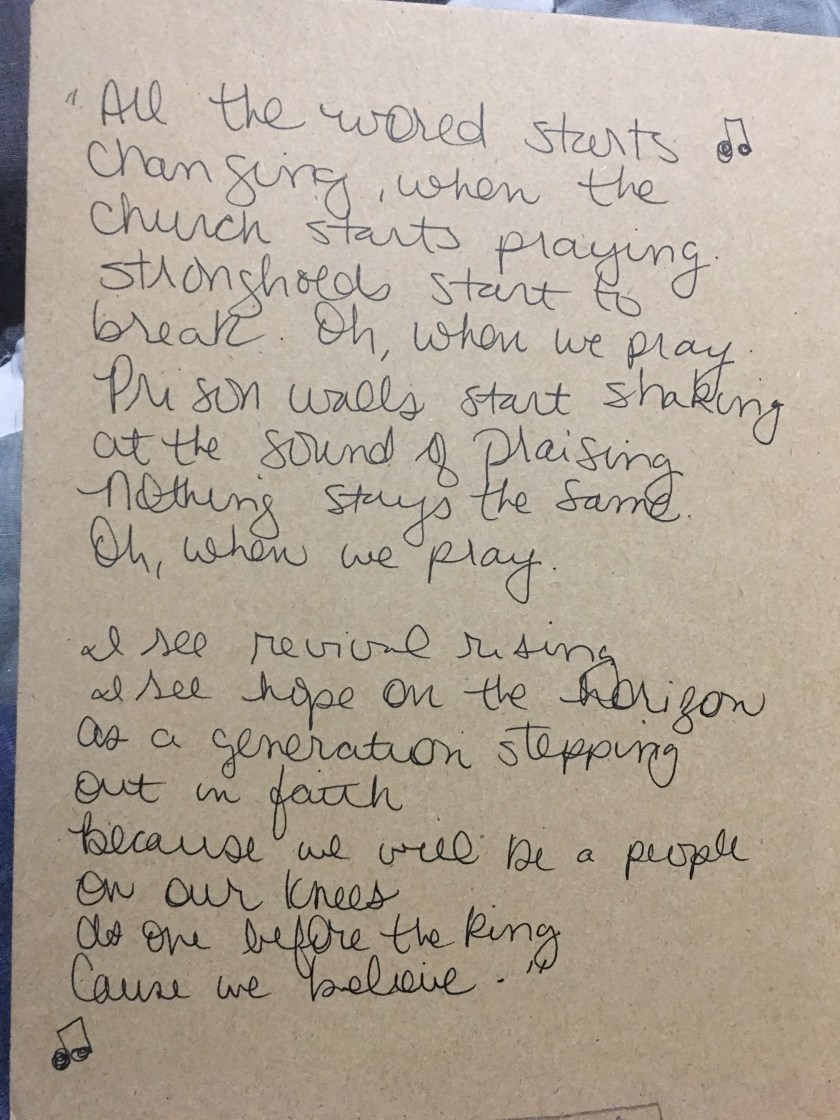 "All the world starts
changing, when the
church starts praying.
strongholds start to
break. Oh, when we pray.
Prison walls start shaking
at the sound of praising
Nothing stays the same.
Oh, when we pray.
I see revival rising
I see hope on the horizon
as a generation stepping
out in faith
because we will be a people
on our knees
As one before the King
Cause we believe."